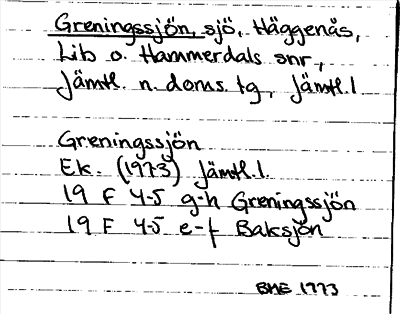 Greningssjön, sjö, Häggenås,
Lits o. Hammerdals snr,
Jämtl. n. doms. tg, Jämtl. l
Greningssjön
Ek. (1973) Jämtl. l.
19 F 4-5 g-h Greningssjön
19 F 4-5 e-f Baksjön
BME 1973